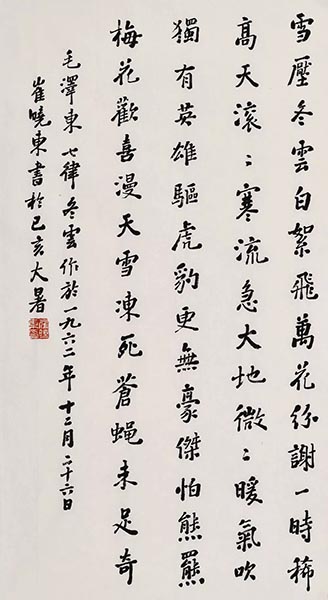 雪壓冬雲白絮飛萬花紛謝一時稀
高天滚〻寒流急大地微〻暖氣吹
獨有英雄驅虎豹更無豪傑怕熊羆
梅花歡喜漫天雪凍死蒼蝇未足奇
毛澤東七律冬雲作於一九六二年十二月二十六日
崔曉東書於己亥大暑